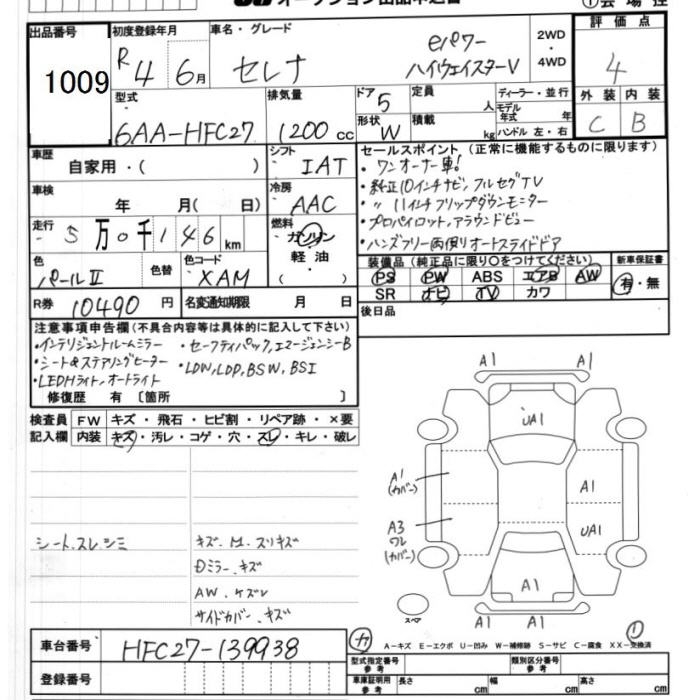 オークション出品申込書
出品番号
1009
初度登録年月
R4 6月
車名・グレード
セレナ
eパワー
ハイウェイスターV
2WD
・
4WD
評価点
4
外装 内装
C B
型式
6AA-HFC27
排気量
1200cc
ドア 5
形状 W
定員 人
積載 kg
ディーラー・並行
モデル年式 年
ハンドル 左・右
車歴
自家用・( )
シフト
IAT
車検
年 月( 日)
冷房
AAC
走行
5万0千146km
燃料
ガソリン
・
軽油
( )
色
パールⅡ
色替
色コード
XAM
R券 10490円
名変通知期限 月 日
セールスポイント(正常に機能するものに限ります)
・ワンオーナー車!
・純正10インチナビ,フルセグTV
・〃 11インチフリップダウンモニター
・プロパイロット,アラウンドビュー
・ハンズフリー両側オートスライドドア
装備品(純正品に限り○をつけてください)
PS PW ABS エアB AW
SR ナビ TV カワ
新車保証書
有・無
後日品
注意事項申告欄(不具合内容等は具体的に記入して下さい)
・インテリジェントルームミラー
・シート&ステアリングヒーター
・LEDHライト,オートライト
・セーフティパック,エマージェンシーB
・LDW,LDP,BSW,BSI
修復歴 有〔箇所 〕
検査員
記入欄
FW キズ・飛石・ヒビ割・リペア跡・×要
内装 キズ・汚レ・コゲ・穴・スレ・キレ・破レ
シート.スレ.シミ
キズ.M.スリキズ
Dミラー.キズ
AW.ケズレ
サイドカバー.キズ
A1 A1
UA1
A1
(カバー)
A1
A3
ワレ
(カバー)
UA1
A1
A1 A1
スペア
車台番号
HFC27-139938
登録番号
A-キズ E-エクボ U-凹み W-補修跡 S-サビ C-腐食 XX-交換済
型式指定番号
参考
類別区分番号
参考
車庫証明用
参考
長さ cm
幅 cm
高さ cm